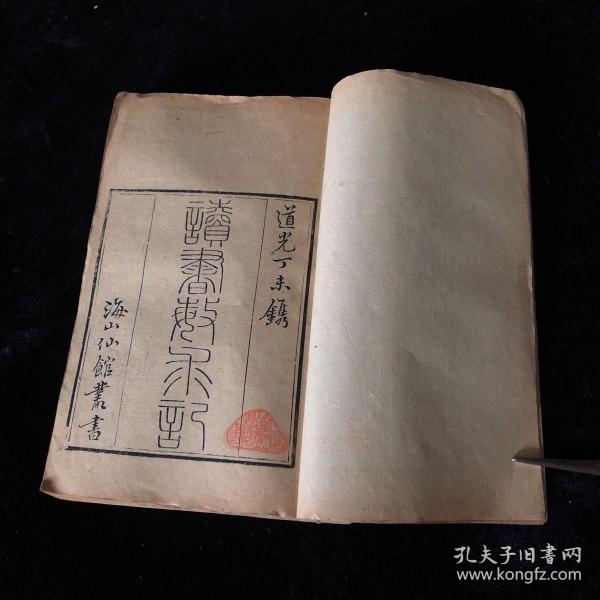 道光丁未鐫
讀書敏求記
海山仙館叢書
孔夫子旧书网
www.kongfz.com